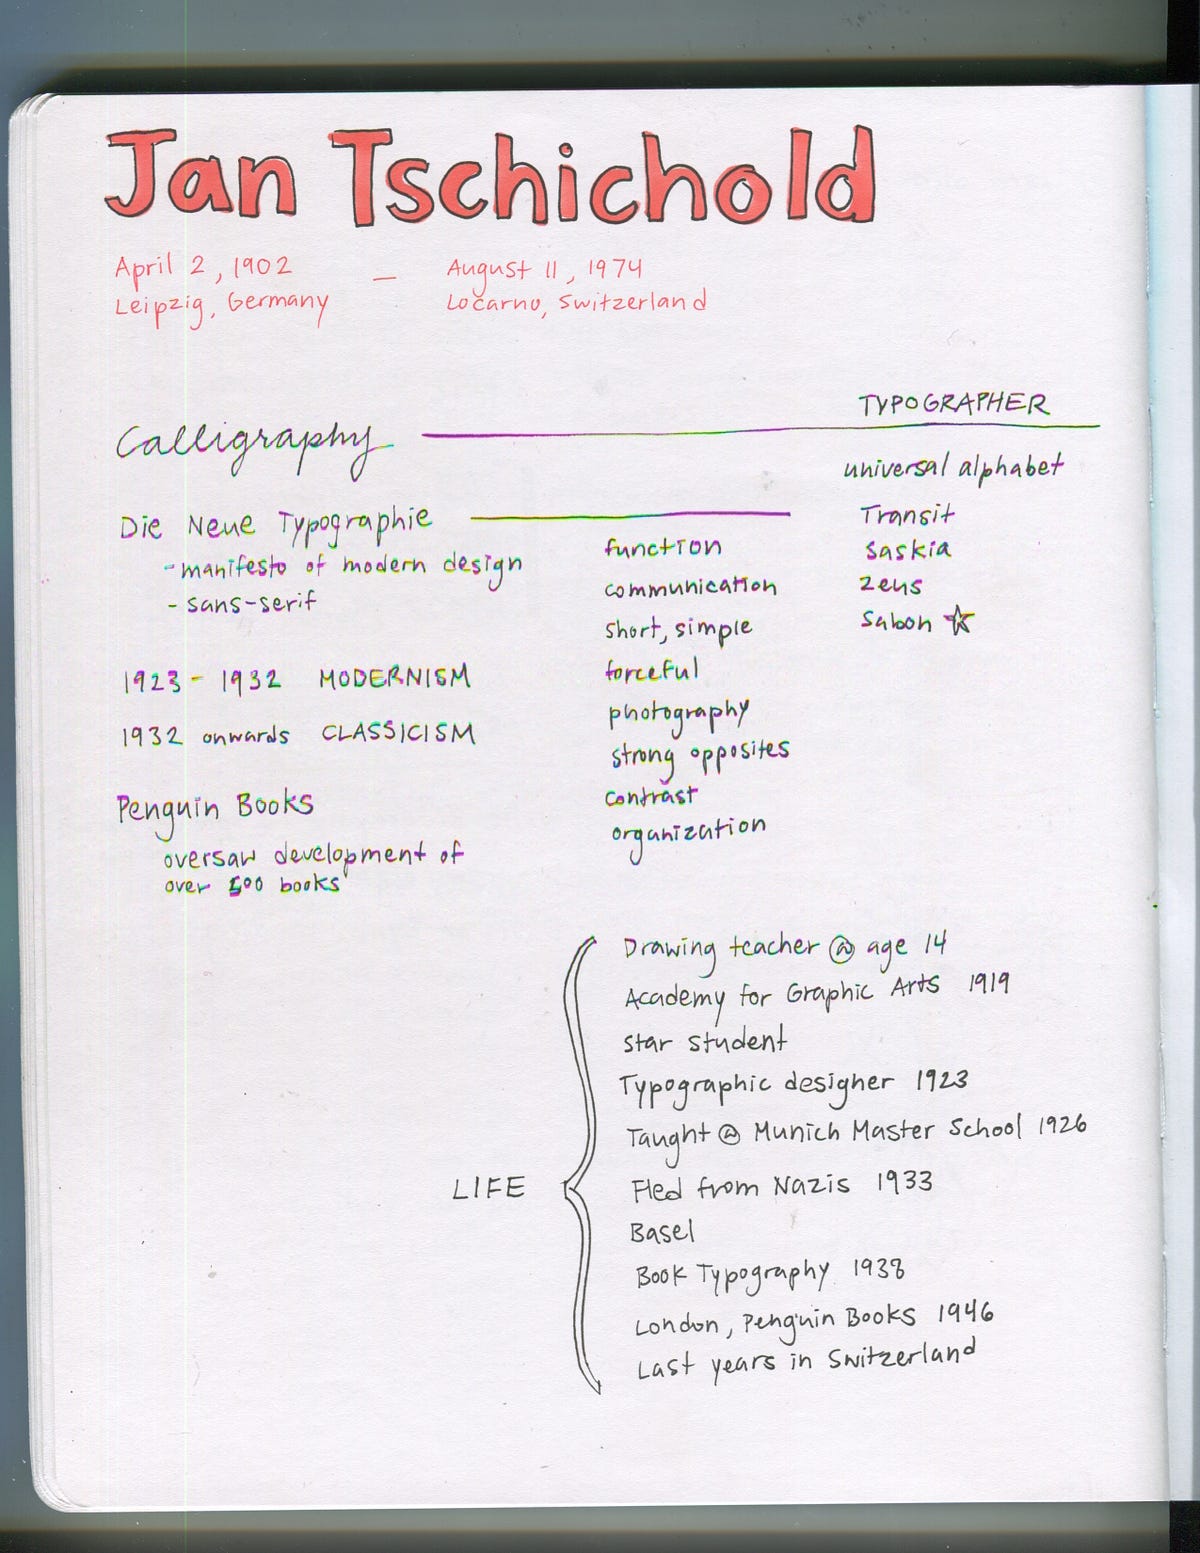 Jan Tschichold
April 2, 1902 — August 11, 1974
Leipzig, Germany Locarno, Switzerland
TYPOGRAPHER
Calligraphy
universal alphabet
Transit
Saskia
Zeus
Sabon ☆
Die Neue Typographie
- manifesto of modern design
- sans-serif
function
communication
short, simple
forceful
photography
strong opposites
contrast
organization
1923 - 1932 MODERNISM
1932 onwards CLASSICISM
Penguin Books
oversaw development of
over 500 books
LIFE
Drawing teacher @ age 14
Academy for Graphic Arts 1919
star student
Typographic designer 1923
Taught @ Munich Master School 1926
Fled from Nazis 1933
Basel
Book Typography 1938
London, Penguin Books 1946
Last years in Switzerland